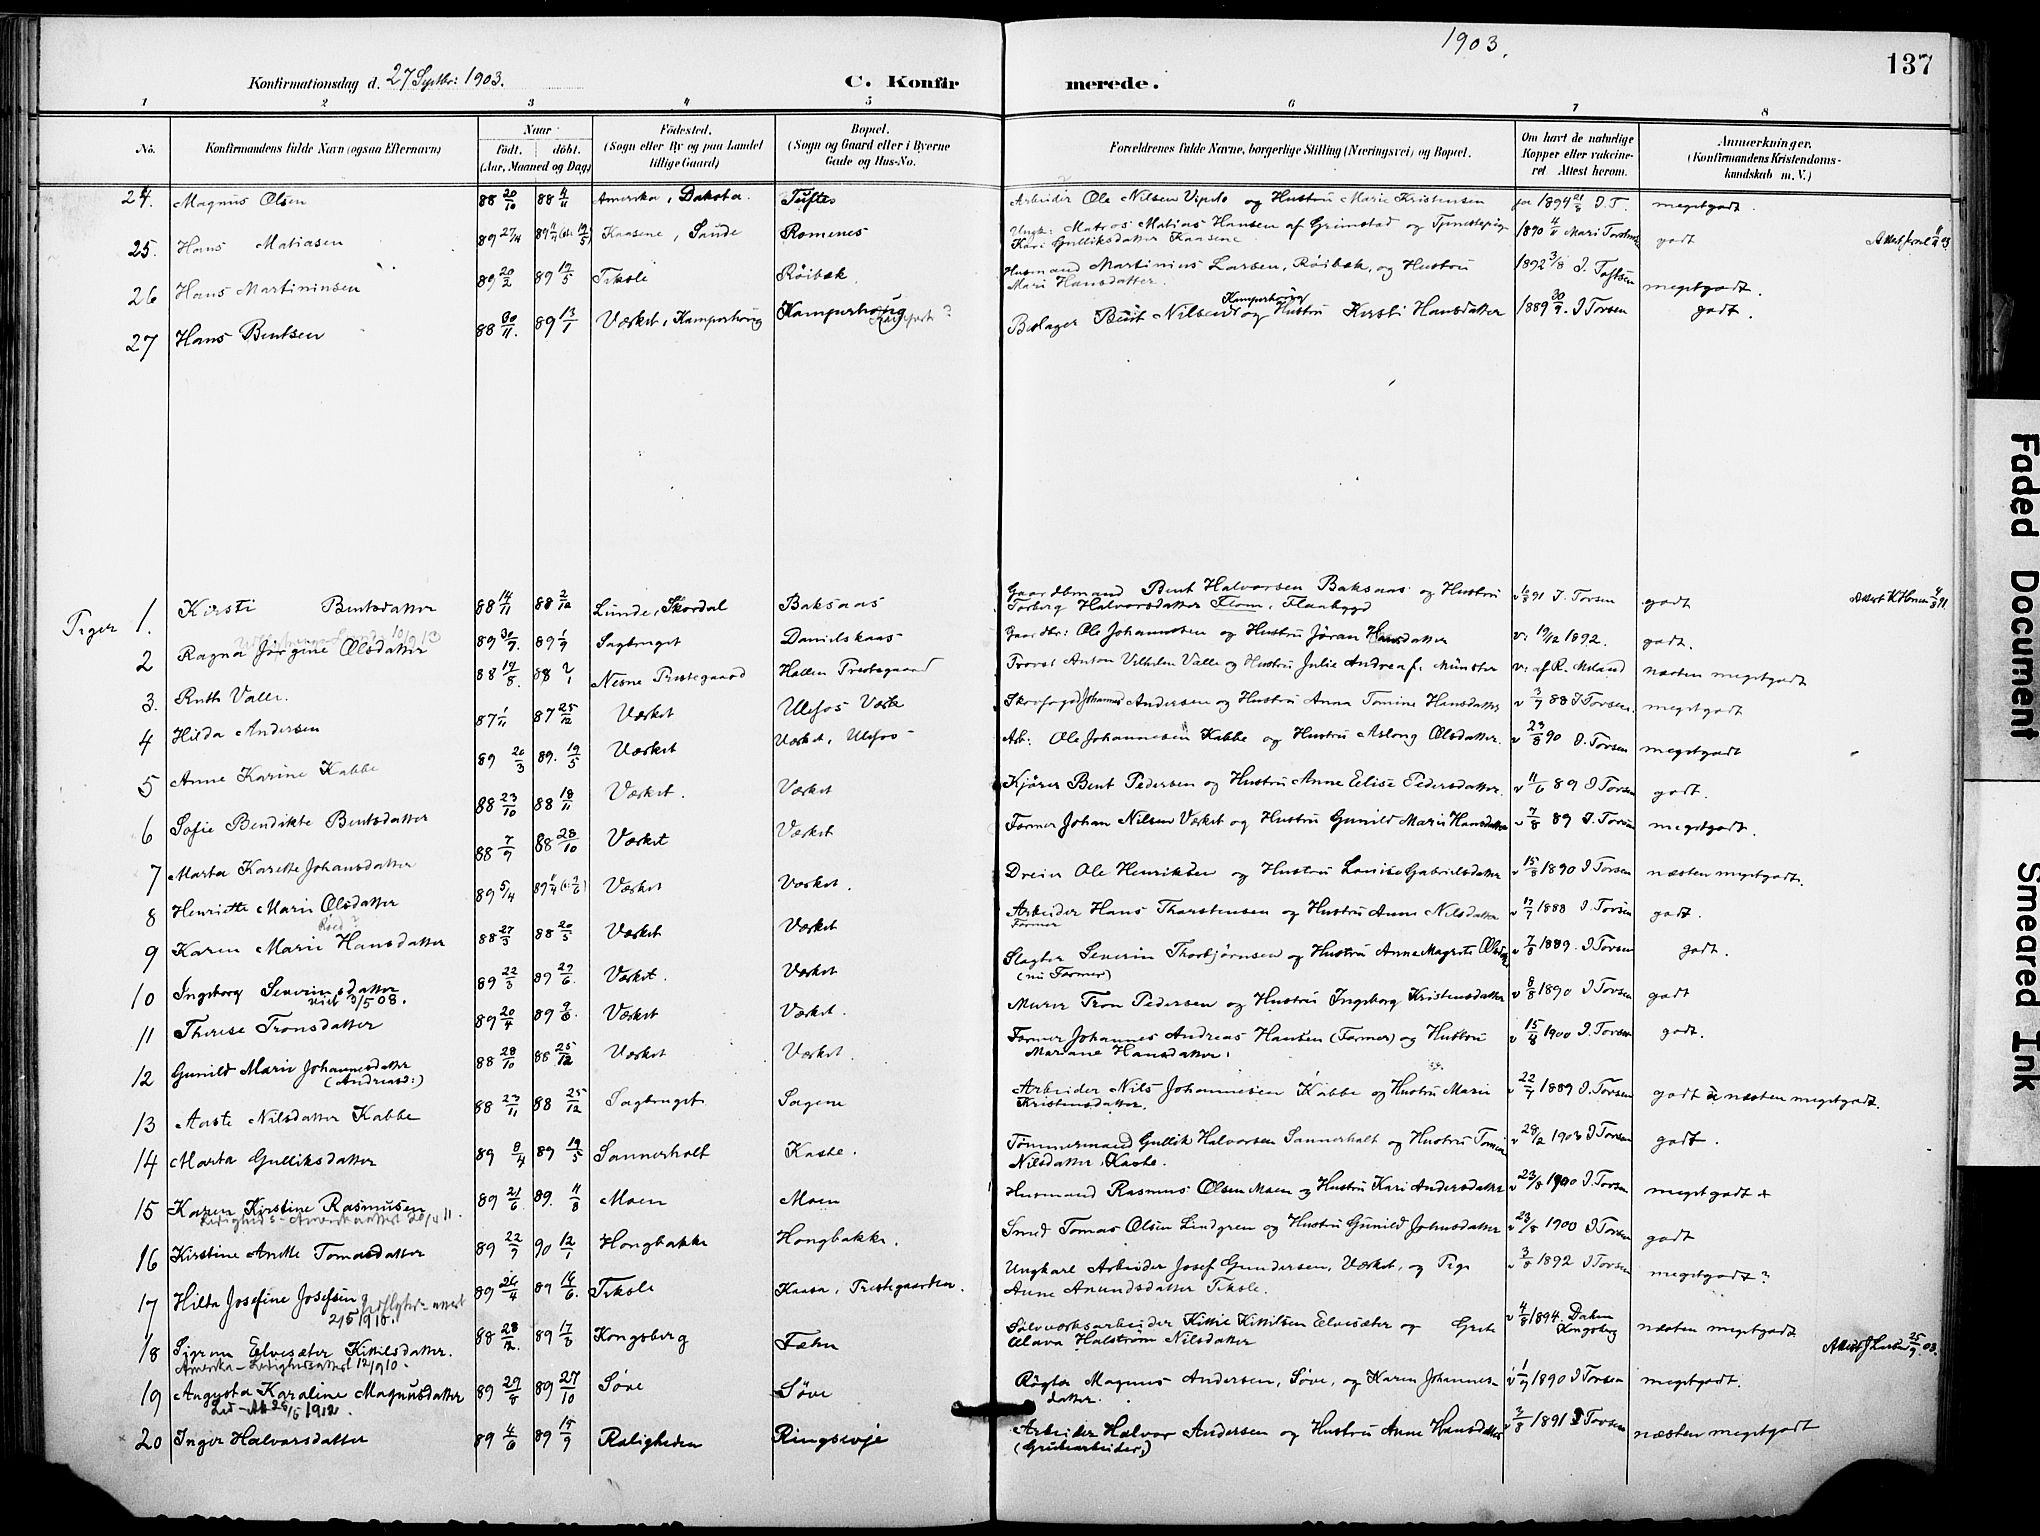 1903.
137
Konfirmationsdag d. 27 Septbr: 1903.
C. Konfirmerede.
1 2 3 4 5 6 7 8
No.
Konfirmandens fulde Navn (ogsaa Efternavn)
Naar
født. døbt.
(Aar, Maaned og Dag)
Fødested.
(Sogn eller By og paa Landet
tillige Gaard)
Bopæl.
(Sogn og Gaard eller i Byerne
Gade og Hus-No.
Forældrenes fulde Navne, borgerlige Stilling (Næringsvei) og Bopæl.
Om havt de naturlige
Kopper eller vakcine-
ret. Attest herom.
Anmærkninger.
(Konfirmandens Kristendoms-
kundskab m. V.)
24. Magnus Olsen 88 20/10 88 4/11 Amerika, Dakota. Tuftes Arbeider Ole Nilsen Vipeto og Hustru Marie Kristensen 1894 21/8 I. T. megetgodt.
25. Hans Matiasen 89 27/4 Kaasene, Saude Romenes Ungk: Matros Matias Hansen af Grimstad og Tjenestepige 1890 4/11 Mari Torstens godt
Kari Gulliksdatter Kaasene
26 Hans Martininsen 89 20/2 89 19/5 Tiksle Røibæk Husmand Martinius Larsen, Røibæk, og Hustru 1892 3/8 I. Toftsen megetgodt.
Mari Hansdatter.
27 Hans Bentsen 88 30/11. 89 13/1 Værket, Kamperhoug Kamperhoug Bolager Bent Nilsen og Hustru Kirsti Hansdatter 1889 30/9. I Torsen godt.
Kamperhoug
Piger 1. Kirsti Bentsdatter 88 14/11 88 2/12 Lunde, Skordal Baksaas Gaardbmand Bent Halvorsen Baksaas og Hustru 91 I. Torsen godt
Torberg Halvorsdatter Flom, Flaabygd
2 Ragna Jørgine Olsdatter 89 30/7. 89 1/9 Sagbruget Danielskaas Gaardbr: Ole Johannesen og Hustru Jøran Hansdatter v: 19/12 1892. godt.
3. Ruth Valle. 88 19/8. Nesne Prestegaard Hollen Prestegaard Provst Anton Vilhelm Valle og Hustru Julie Andrea f. Münster v: af R. Moland næsten megetgodt
4 Hilda Andersen 87 1/11 87 25/12 Værket Ulefos Værk Skovfoged Johannes Andersen og Hustru Anna Tomine Hansdatter v 3/7 88 I Torsen. megetgodt
5 Anne Karine Kabbe 89 20/3 89. 19/5 Værket Værket, Ulefos Arb: Ole Johannesen Kabbe og Hustru Aslong Olsdatter. v 23/8 90 I. Torsen megetgodt
6 Sofie Bendikte Bentsdatter 88 23/10 88 18/11 Værket. Værket Kjører Bent Pedersen og Hustru Anne Elise Pedersdatter. v 11/6 89 I Torsen godt.
7 Marta Karette Johansdatter 88 7/9 88 28/10 Værket Værket Former Johan Nilsen Værket og Hustru Gunild Marie Hansdatter v 7/8 89 I. Torsen megetgodt.
8 Henriette Marie Olsdatter 89 5/4 Værket Værket. Dreier Ole Henriksen og Hustru Lovise Gabrielsdatter v 15/8 1890 I Torsen næsten megetgodt.
9 Karen Marie Hansdatter 88 27/3 88 20/5 Værket Værket Arbeider Hans Tharstensen og Hustru Anne Nilsdatter v 17/7 1888 I. Torsen godt.
Former
10 Ingeborg Severinsdatter 89 22/3 89 29/6. Værket. Værket Slagter Severin Thorbjørnsen og Hustru Anne Magrete v 7/8 1889. I Torsen godt.
viet 3/5 08.
(nu Former)
11 Therese Tronsdatter 89 20/4 89 9/6. Værket Værket. Murer Tron Pedersen og Hustru Ingeborg Kristensdatter v 8/8 1890 I Torsen godt
12 Gunild Marie Johannesdatter 88 28/10 88 25/12 Værket Værket. Former Johannes Andreas Hansen (Former) og Hustru v 15/8 1900 I. Torsen godt.
(Andreasd:)
Mariane Hansdatter.
13 Aaste Nilsdatter Kabbe 88 23/11 88 25/12 Sagbruget Sagene Arbeider Nils Johannesen Kabbe og Hustru Marie v 22/7 1889 I. Torsen godt à næsten megetgodt.
Kristensdatter.
14 Marta Gulliksdatter 89 8/4 89 19/5 Sannerholt Kaste. Tømmermand Gullik Halvorsen Sannerholt og Hustru Tomine v 28/2 1903 I Torsen godt.
Nilsdatter, Kaste.
15 Karen Kirstine Rasmusen 89 21/6 89. 11/8 Moen Moen Husmand Rasmus Olsen Moen og Hustru Kari Andersdatter v 23/8 1900 I Torsen megetgodt
16 Kirstine Anette Tomasdatter 89 22/9 90 12/1 Hongbakke Hongbakke. Smed Tomas Olsen Lindgren og Hustru Gunild Johnsdatter v 23/8 1900 I Torsen godt
17 Hilda Josefine Josefsen 89 24/4 89 16/6. Tiksle Kaasa, Prestegaarden. Ungkarl Arbeider Josef Gundersen, Værket, og Pige v 3/8 1892 I Torsen megetgodt?
Anne Amundsdatter Tiksle.
18 Sigrun Elvesæter Kittilsdatter. 88 28/12. 89 17/3 Kongsberg Fæhn Sølvverksarbeider Kittil Kittilsen Elvesæter og Grete v 4/8 1894. Dahm Kongsberg næsten megetgodt
Olava Halstrøm Nilsdatter
Amerika - Ledighedsattest 12/1910.
19 Augusta Karaline Magnusdatter 89 29/8 89 27/10 Søve Søve Røgter Magnus Andersen, Søve, og Karen Johannes- v 1/9 1890 I Torsen megetgodt.
datter.
20 Inger Halvorsdatter 89 4/6 89 15/9 Raligheden Ringsevje Arbeider Halvor Andersen og Hustru Anne Hansdatter v 3/8 1891 I Torsen næsten megetgodt
(Grubearbeider)
Faded Document
Smeared Ink